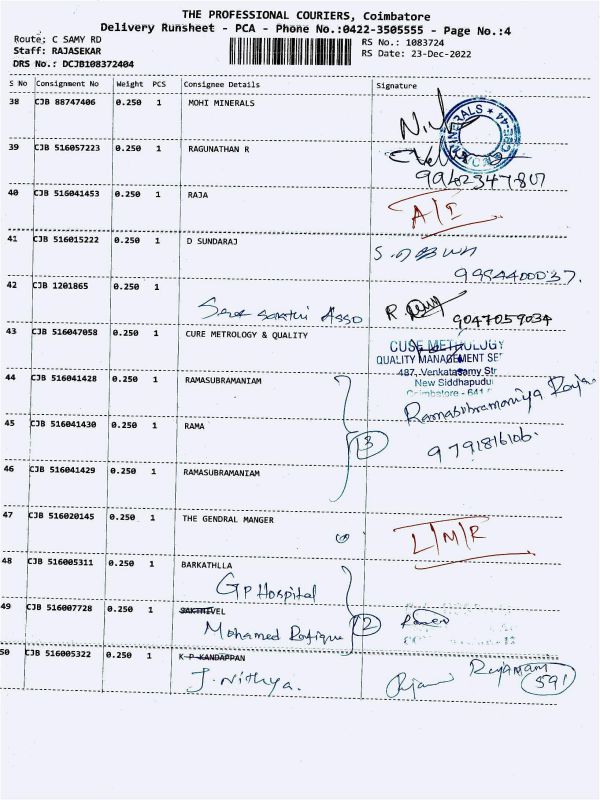 THE PROFESSIONAL COURIERS, Coimbatore
Delivery Runsheet - PCA - Phone No.:0422-3505555 - Page No.:4
Route; C SAMY RD
RS No.: 1083724
Staff: RAJASEKAR
RS Date: 23-Dec-2022
DRS No.: DCJB108372404
S No Consignment No Weight PCS Consignee Details Signature
38 CJB 88747406 0.250 1 MOHI MINERALS
MINERALS
39 CJB 516057223 0.250 1 RAGUNATHAN R
9962347807
40 CJB 516041453 0.250 1 RAJA
A/I
41 CJB 516015222 0.250 1 D SUNDARAJ
9994400037.
42 CJB 1201865 0.250 1
Asso R 9047059034
43 CJB 516047058 0.250 1 CURE METROLOGY & QUALITY
QUALITY MANAGEMENT
487, Venkatasamy Str
New Siddhapudu
Coimbatore - 641
44 CJB 516041428 0.250 1 RAMASUBRAMANIAM
Ramasubramaniya Raja
45 CJB 516041430 0.250 1 RAMA
3
9791816106.
46 CJB 516041429 0.250 1 RAMASUBRAMANIAM
47 CJB 516020145 0.250 1 THE GENDRAL MANGER
L/M/R
48 CJB 516005311 0.250 1 BARKATHLLA
GP Hospital
49 CJB 516007728 0.250 1 SAKTHIVEL
Mohamed Rafique 2
50 CJB 516005322 0.250 1 K P KANDAPPAN
J. Nithya. 591